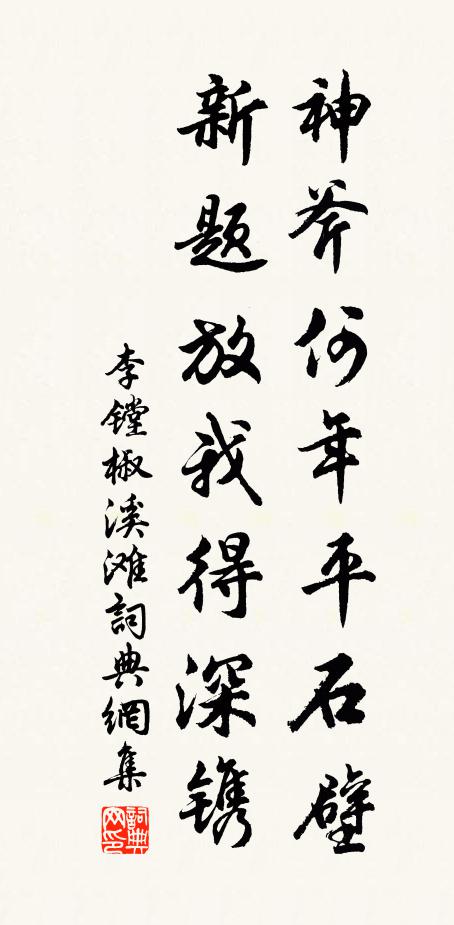 神斧何年平石壁
新题放我得深镌
李镗椒溪滩詞典網集
詞典网印